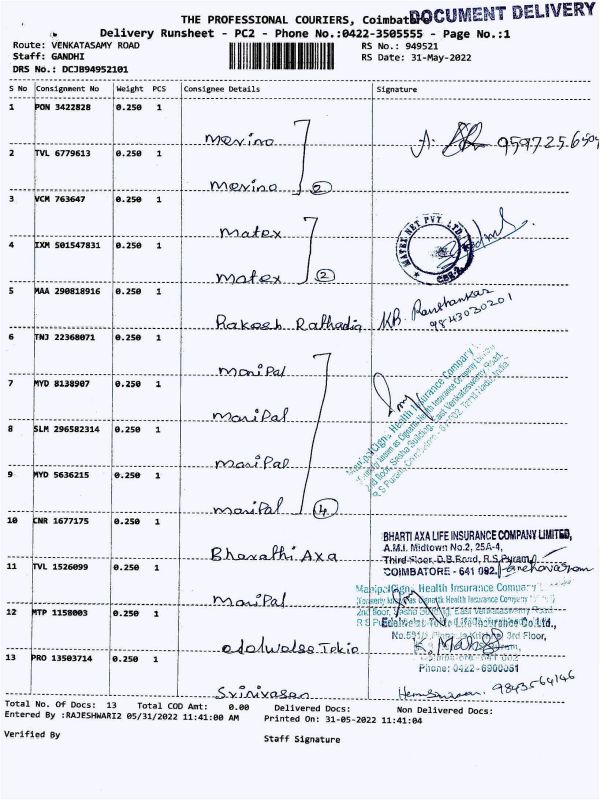 THE PROFESSIONAL COURIERS, Coimbatore
DOCUMENT DELIVERY
Delivery Runsheet - PC2 - Phone No.:0422-3505555 - Page No.:1
Route: VENKATASAMY ROAD RS No.: 949521
Staff: GANDHI RS Date: 31-May-2022
DRS No.: DCJB94952101
S No Consignment No Weight PCS Consignee Details Signature
1 PON 3422828 0.250 1
Merino
2 TVL 6779613 0.250 1
Merino 2
3 VCM 763647 0.250 1
Matex
MATEX NET PVT. LTD.
4 IXM 501547831 0.250 1
Matex 2
CBE-2
5 MAA 290818916 0.250 1
Rakesh Rathadia
9843030201
6 TNJ 22368071 0.250 1
ManiPal
7 MYD 8138907 0.250 1
ManiPal
8 SLM 296582314 0.250 1
ManiPal
9 MYD 5636215 0.250 1
ManiPal 4
ManipalCigna Health Insurance Company
2nd floor, Sesha Building, East Venkataswamy Road,
10 CNR 1677175 0.250 1
Bharathi Axa
BHARTI AXA LIFE INSURANCE COMPANY LIMITED,
A.M.I. Midtown No.2, 25A-4,
Third Floor, D.B.Road, R.S.Puram
COIMBATORE - 641 002.
11 TVL 1526099 0.250 1
ManiPal
ManipalCigna Health Insurance Company
12 MTP 1158003 0.250 1
Edelweiss Tokio Life Insurance Co.Ltd.,
3rd Floor,
Phone: 0422-6900051
13 PRO 13503714 0.250 1
Srinivasan
9843564146
Total No. Of Docs: 13 Total COD Amt: 0.00 Delivered Docs: Non Delivered Docs:
Entered By :RAJESHWARI2 05/31/2022 11:41:00 AM Printed On: 31-05-2022 11:41:04
Verified By
Staff Signature